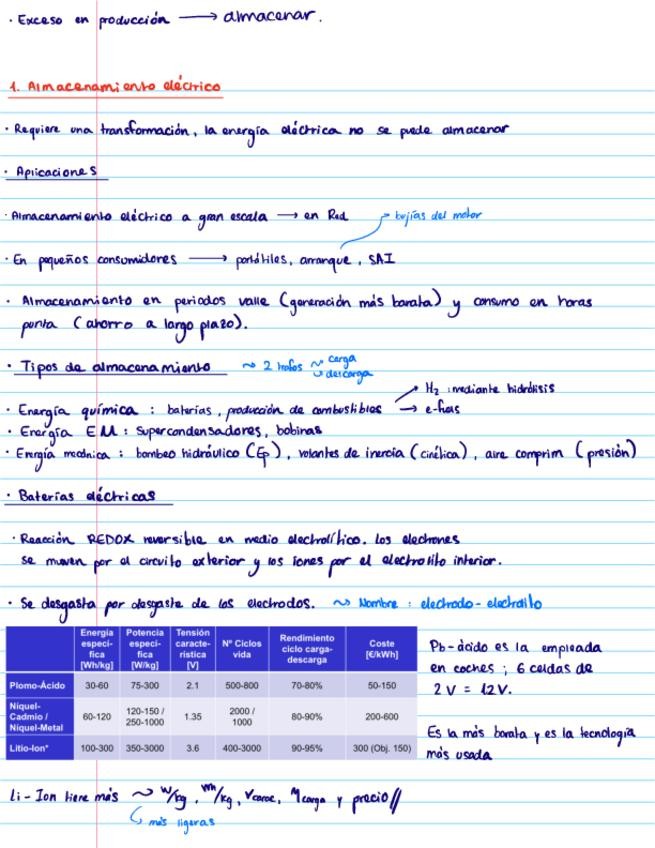 · Exceso en producción → almacenar.
1. Almacenamiento eléctrico
· Requiere una transformación, la energía eléctrica no se puede almacenar
· Aplicaciones
· Almacenamiento eléctrico a gran escala → en Red
bujías del motor
· En pequeños consumidores → portátiles, arranque, SAI
· Almacenamiento en periodos valle (generación más barata) y consumo en horas
punta (ahorro a largo plazo).
· Tipos de almacenamiento ~ 2 trafos carga
descarga
H₂ : mediante hidrólisis
· Energía química : baterías, producción de combustibles → e-fuels
· Energía EM : supercondensadores, bobinas
· Energía mecánica : bombeo hidráulico (Ep), volantes de inercia (cinética), aire comprim (presión)
· Baterías eléctricas
· Reacción REDOX reversible en medio electrolítico. los electrones
se mueven por el circuito exterior y los iones por el electrolito interior.
· Se desgasta por desgaste de los electrodos. ~ Nombre : electrodo - electrolito
Energía especí-fica [Wh/kg] Potencia especí-fica [W/kg] Tensión caracte-rística [V] Nº Ciclos vida Rendimiento ciclo carga-descarga Coste [€/kWh]
Plomo-Ácido 30-60 75-300 2.1 500-800 70-80% 50-150
Níquel-Cadmio / Níquel-Metal 60-120 120-150 / 250-1000 1.35 2000 / 1000 80-90% 200-600
Litio-Ion* 100-300 350-3000 3.6 400-3000 90-95% 300 (Obj. 150)
Pb-ácido es la empleada
en coches ; 6 celdas de
2 V = 12 V.
Es la más barata y es la tecnología
más usada
Li-Ion tiene más ~ W/kg, Wh/kg, Vcarac, ηcarga y precio //
más ligeras